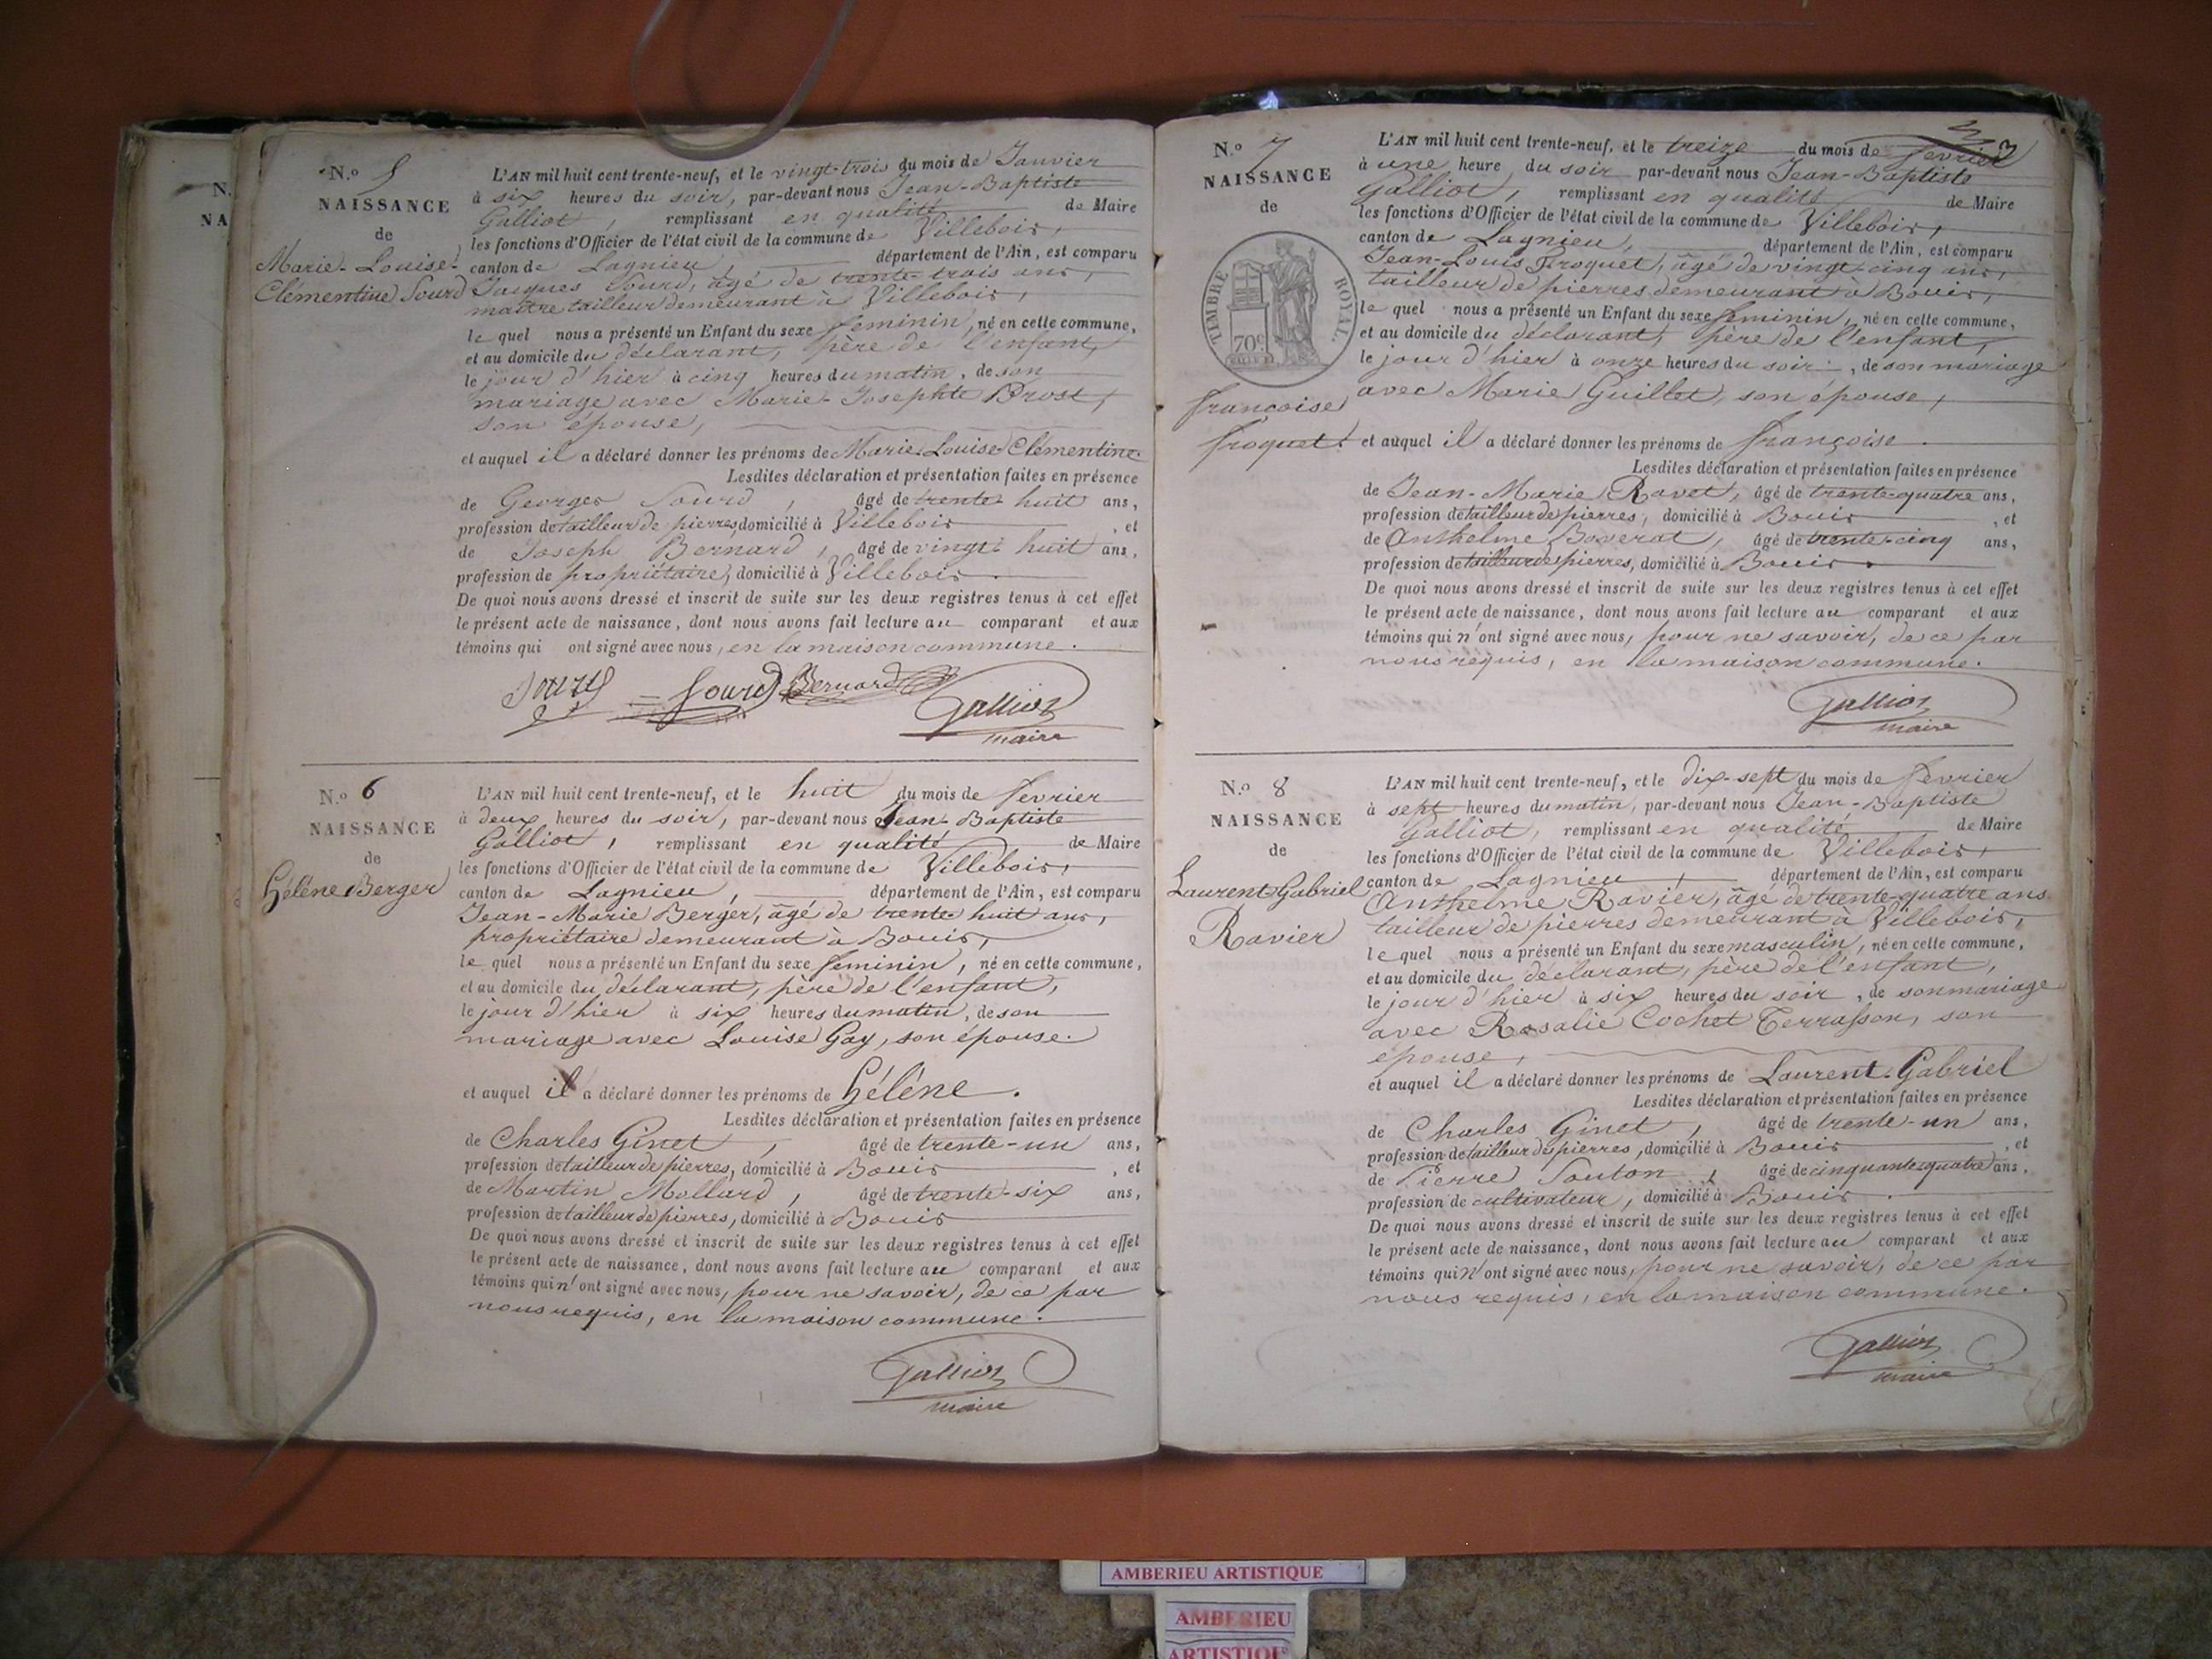 N.º 5
NAISSANCE
de
Marie-Louise-
Clémentine Sourd
L'AN mil huit cent trente-neuf, et le vingt-trois du mois de Janvier
à six heures du soir, par-devant nous Jean-Baptiste
Galliot, remplissant en qualité de Maire
les fonctions d'Officier de l'état civil de la commune de Villebois,
canton de Lagnieu, département de l'Ain, est comparu
Jacques Sourd, âgé de trente-trois ans,
maître tailleur demeurant à Villebois,
le quel nous a présenté un Enfant du sexe feminin, né en cette commune,
et au domicile du déclarant, père de l'enfant,
le jour d'hier à cinq heures du matin, de son
mariage avec Marie-Josephte Brost,
son épouse,
et auquel il a déclaré donner les prénoms de Marie-Louise Clémentine.
Lesdites déclaration et présentation faites en présence
de Georges Sourd, âgé de trente-huit ans,
profession de tailleur de pierres, domicilié à Villebois, et
de Joseph Bernard, âgé de vingt-huit ans,
profession de propriétaire, domicilié à Villebois.
De quoi nous avons dressé et inscrit de suite sur les deux registres tenus à cet effet
le présent acte de naissance, dont nous avons fait lecture au comparant et aux
témoins qui ont signé avec nous, en la maison commune.
Sourd Sourd Bernard Galliot
maire
N.º 6
NAISSANCE
de
Héléne Berger
L'AN mil huit cent trente-neuf, et le huit du mois de fevrier
à deux heures du soir, par-devant nous Jean-Baptiste
Galliot, remplissant en qualité de Maire
les fonctions d'Officier de l'état civil de la commune de Villebois,
canton de Lagnieu, département de l'Ain, est comparu
Jean-Marie Berger, âgé de trente-huit ans,
propriétaire demeurant à Bouis,
le quel nous a présenté un Enfant du sexe feminin, né en cette commune,
et au domicile du déclarant, père de l'enfant,
le jour d'hier à six heures du matin, de son
mariage avec Louise Gay, son épouse.
et auquel il a déclaré donner les prénoms de Héléne.
Lesdites déclaration et présentation faites en présence
de Charles Ginet, âgé de trente-un ans,
profession de tailleur de pierres, domicilié à Bouis, et
de Martin Mollard, âgé de trente-six ans,
profession de tailleur de pierres, domicilié à Bouis
De quoi nous avons dressé et inscrit de suite sur les deux registres tenus à cet effet
le présent acte de naissance, dont nous avons fait lecture au comparant et aux
témoins qui n'ont signé avec nous, pour ne savoir, de ce par
nous requis, en la maison commune.
Galliot
maire
3
N.º 7
NAISSANCE
de
TIMBRE ROYAL
70c
françoise
froquet.
L'AN mil huit cent trente-neuf, et le treize du mois de fevrier
à une heure du soir par-devant nous Jean-Baptiste
Galliot, remplissant en qualité de Maire
les fonctions d'Officier de l'état civil de la commune de Villebois,
canton de Lagnieu, département de l'Ain, est comparu
Jean-Louis Froquet, âgé de vingt-cinq ans,
tailleur de pierres demeurant à Bouis,
le quel nous a présenté un Enfant du sexe feminin, né en cette commune,
et au domicile du déclarant, père de l'enfant,
le jour d'hier à onze heures du soir, de son mariage
avec Marie Guillet, son épouse,
et auquel il a déclaré donner les prénoms de françoise.
Lesdites déclaration et présentation faites en présence
de Jean-Marie Ravet, âgé de trente-quatre ans,
profession de tailleur de pierres, domicilié à Bouis, et
de Anthelme Boverat, âgé de trente-cinq ans,
profession de tailleur de pierres, domicilié à Bouis.
De quoi nous avons dressé et inscrit de suite sur les deux registres tenus à cet effet
le présent acte de naissance, dont nous avons fait lecture au comparant et aux
témoins qui n'ont signé avec nous, pour ne savoir, de ce par
nous requis, en la maison commune.
Galliot
maire
N.º 8
NAISSANCE
de
Laurent-Gabriel
Ravier
L'AN mil huit cent trente-neuf, et le dix-sept du mois de fevrier
à sept heures du matin, par-devant nous Jean-Baptiste
Galliot, remplissant en qualité de Maire
les fonctions d'Officier de l'état civil de la commune de Villebois,
canton de Lagnieu, département de l'Ain, est comparu
Anthelme Ravier, âgé de trente-quatre ans
tailleur de pierres demeurant à Villebois,
le quel nous a présenté un Enfant du sexe masculin, né en cette commune,
et au domicile du déclarant, père de l'enfant,
le jour d'hier à six heures du soir, de son mariage
avec Rosalie Cochet Terrasson, son
épouse,
et auquel il a déclaré donner les prénoms de Laurent-Gabriel
Lesdites déclaration et présentation faites en présence
de Charles Ginet, âgé de trente-un ans,
profession de tailleur de pierres, domicilié à Bouis, et
de Pierre Souton, âgé de cinquante-quatre ans,
profession de cultivateur, domicilié à Bouis.
De quoi nous avons dressé et inscrit de suite sur les deux registres tenus à cet effet
le présent acte de naissance, dont nous avons fait lecture au comparant et aux
témoins qui n'ont signé avec nous, pour ne savoir, de ce par
nous requis, en la maison commune.
Galliot
maire
AMBERIEU ARTISTIQUE
AMBERIEU
ARTISTIQUE